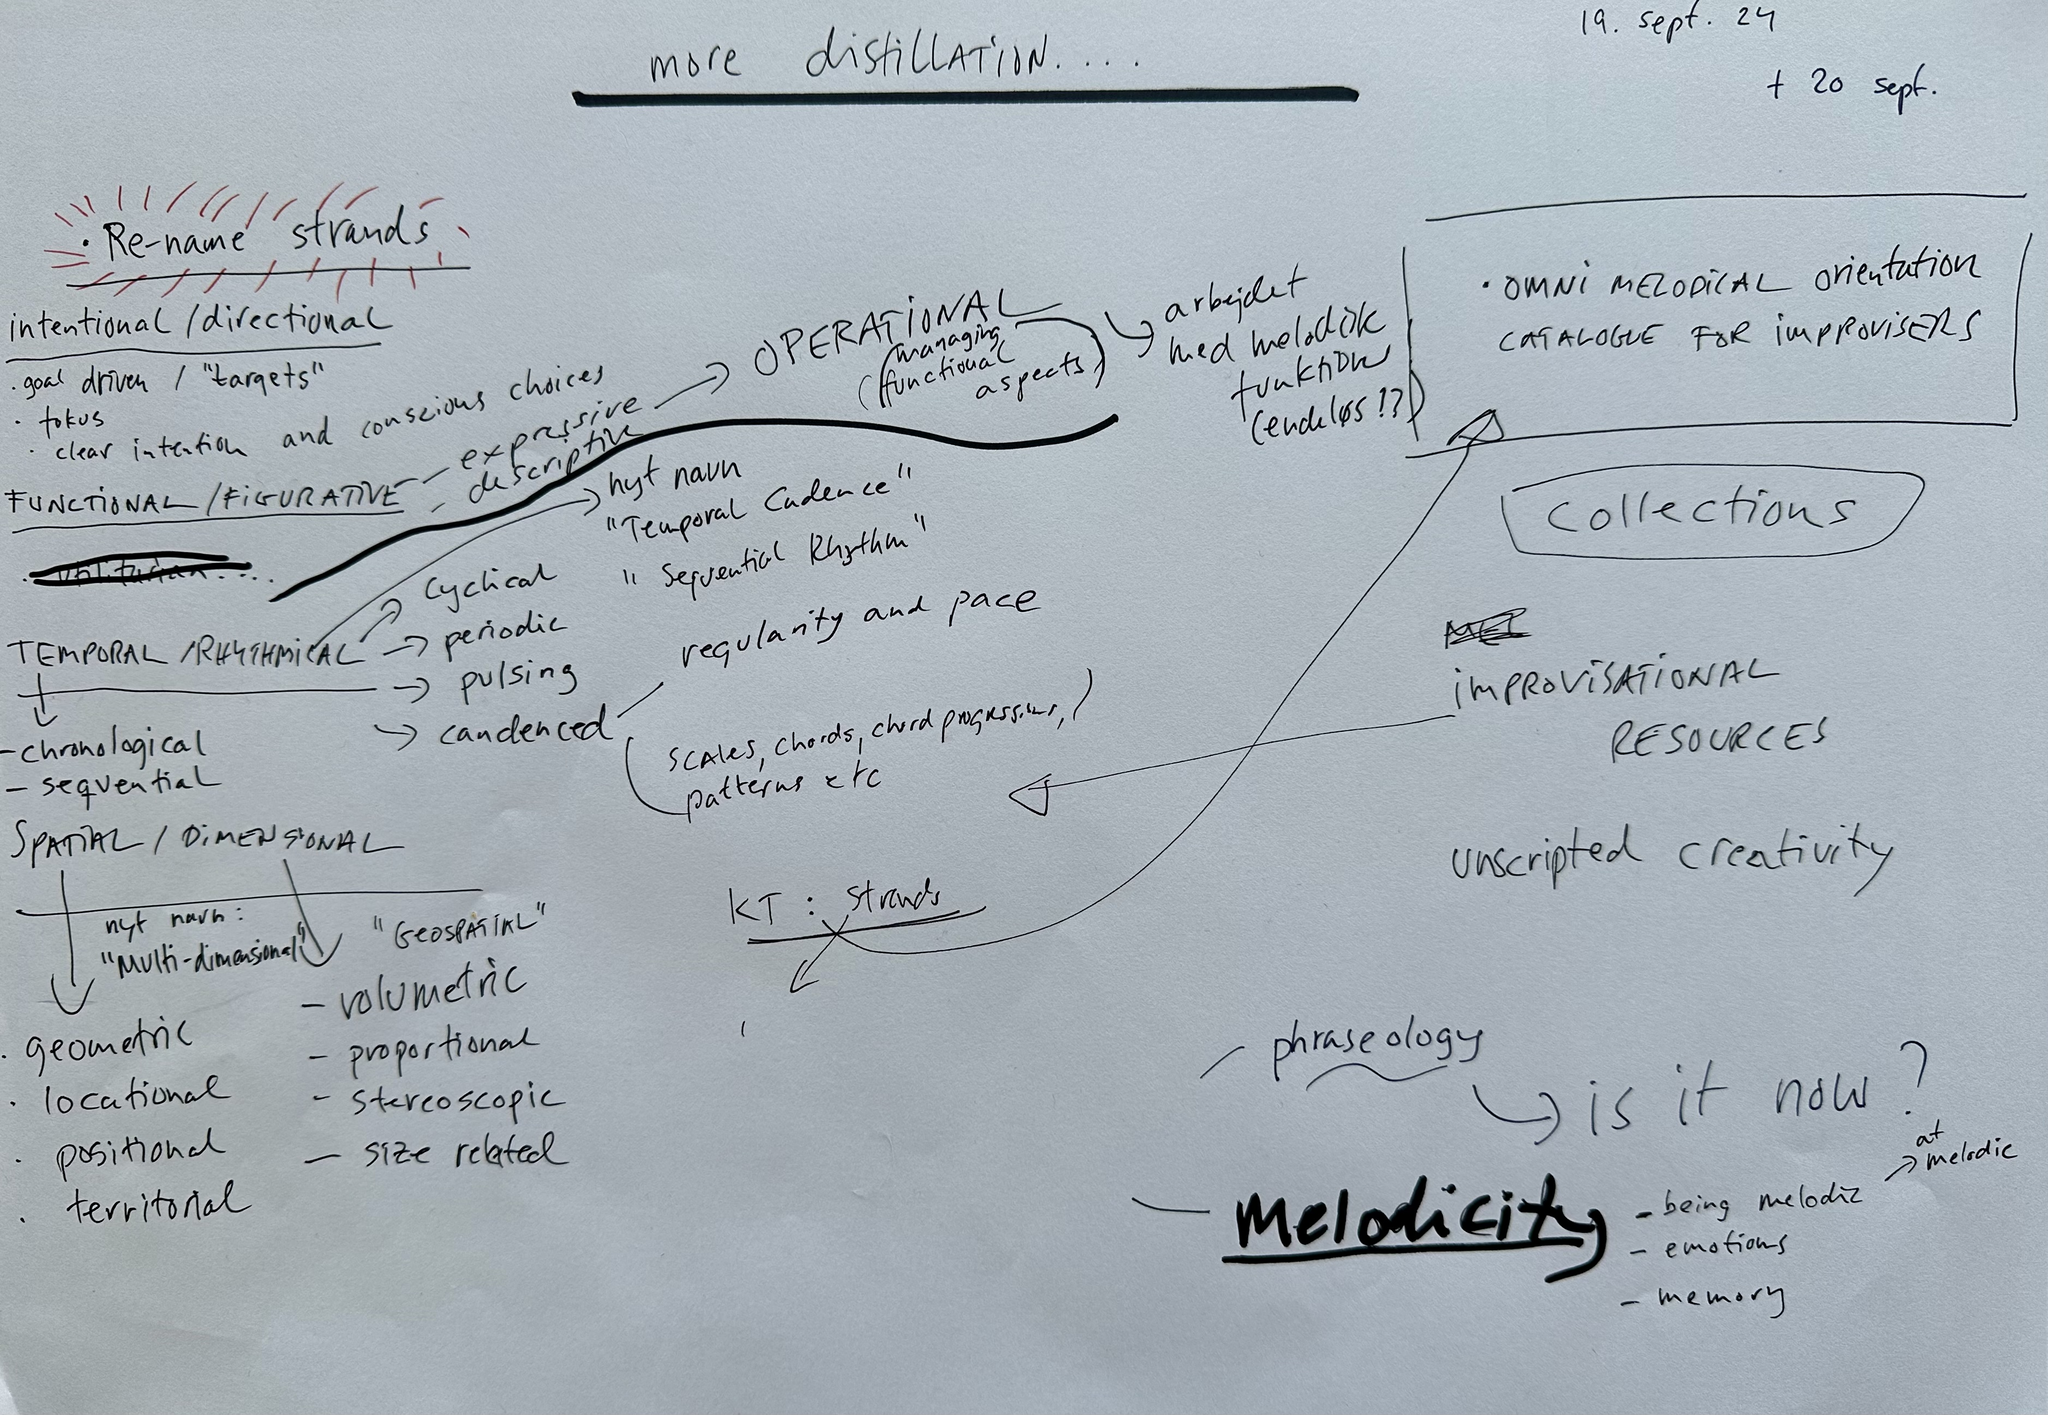 more distillation....
19. sept. 24
+ 20 sept.
• Re-name strands
intentional / directional
• goal driven / "targets"
• fokus
• clear intention and conscious choices
FUNCTIONAL / FIGURATIVE
- expressive
- descriptive
OPERATIONAL
(managing
functional
aspects)
arbejdet
med melodisk
funktion
(endeløs!?)
• OMNI MELODICAL orientation
CATALOGUE FOR IMPROVISERS
Collections
nyt navn
"Temporal Cadence"
"Sequential Rhythm"
TEMPORAL / RHYTHMICAL
cyclical
periodic
pulsing
candenced
regularity and pace
- chronological
- sequential
scales, chords, chord progressions,
patterns etc
IMPROVISATIONAL
RESOURCES
unscripted creativity
SPATIAL / DIMENSIONAL
nyt navn:
"Multi-dimensional"
"GEOSPATIAL"
• geometric
• locational
• positional
• territorial
- volumetric
- proportional
- stereoscopic
- size related
KT : strands
- phraseology
is it now?
- Melodicity
- being melodic
at
melodic
- emotions
- memory